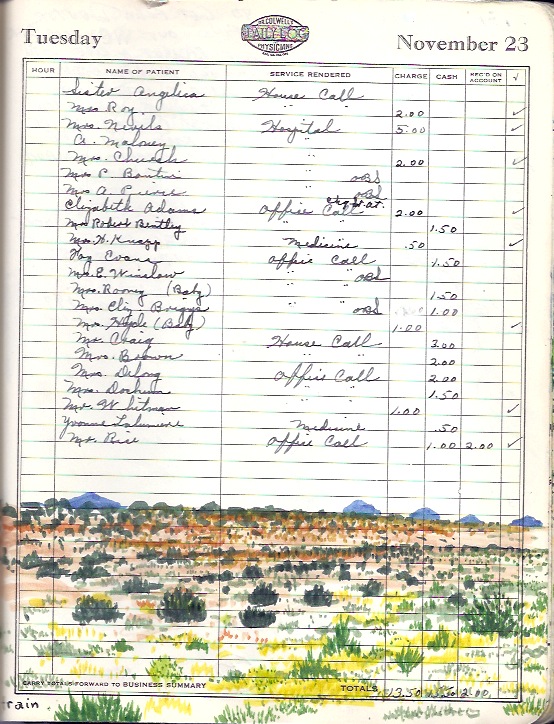 Tuesday
DR. COLWELL'S
DAILY LOG
PHYSICIANS
November 23
HOUR NAME OF PATIENT SERVICE RENDERED CHARGE CASH REC'D ON ACCOUNT √
Sister Angelica House Call
Mrs Roy " " 2.00 ✓
Mrs. Nevils Hospital 5.00 ✓
A. Maloney "
Mrs. Church " 2.00 ✓
Mrs P. " OBS
Mrs A " OBS
Elizabeth Adams Office Call 2.00 ✓
Mrs Robert Bentley " " 1.50
Mrs. H. Knapp Medicine .50 ✓
Fay Evans Office Call 1.50
Mrs. E. Winslow " " OBS
Mrs. Rooney (Baby) " " 1.50
Mrs. Eliz Briggs " " OBS 1.00
Mrs. Hyde (Baby) " " 1.00 ✓
Mr. Craig House Call 3.00
Mrs. Brown " " 2.00
Mrs. Delong Office Call 2.00
Mrs. " " 1.50
Mr. Whitman " " 1.00 ✓
Yvonne Medicine .50
Mr. Rice Office Call 1.00 2.00 ✓
CARRY TOTALS FORWARD TO BUSINESS SUMMARY TOTALS 13.50 2.00
rain